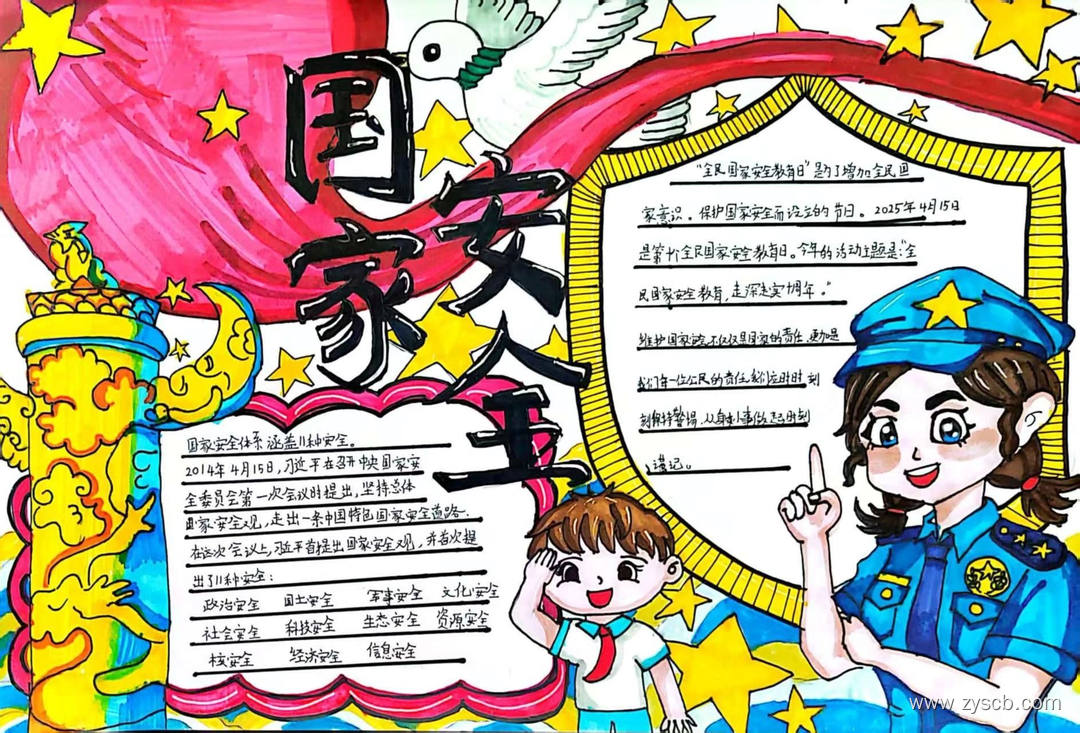 国家
安全
"全民国家安全教育日"是为了增加全民国
家意识。保护国家安全而设立的节日。2025年4月15日
是第十个全民国家安全教育日。今年的活动主题是:"全
民国家安全教育,走深走实十周年。"
维护国家安全,不仅仅是国家的责任,更加是
我们每一位公民的责任,我们应时时刻
刻保持警惕,从身边小事做起时刻
谨记。
国家安全体系涵盖11种安全。
2014年4月15日,习近平在召开中央国家安
全委员会第一次会议时提出,坚持总体
国家安全观,走出一条中国特色国家安全道路。
在这次会议上,习近平首提出国家安全观,并首次提
出了11种安全:
政治安全 国土安全 军事安全 文化安全
社会安全 科技安全 生态安全 资源安全
核安全 经济安全 信息安全
www.zyscb.com